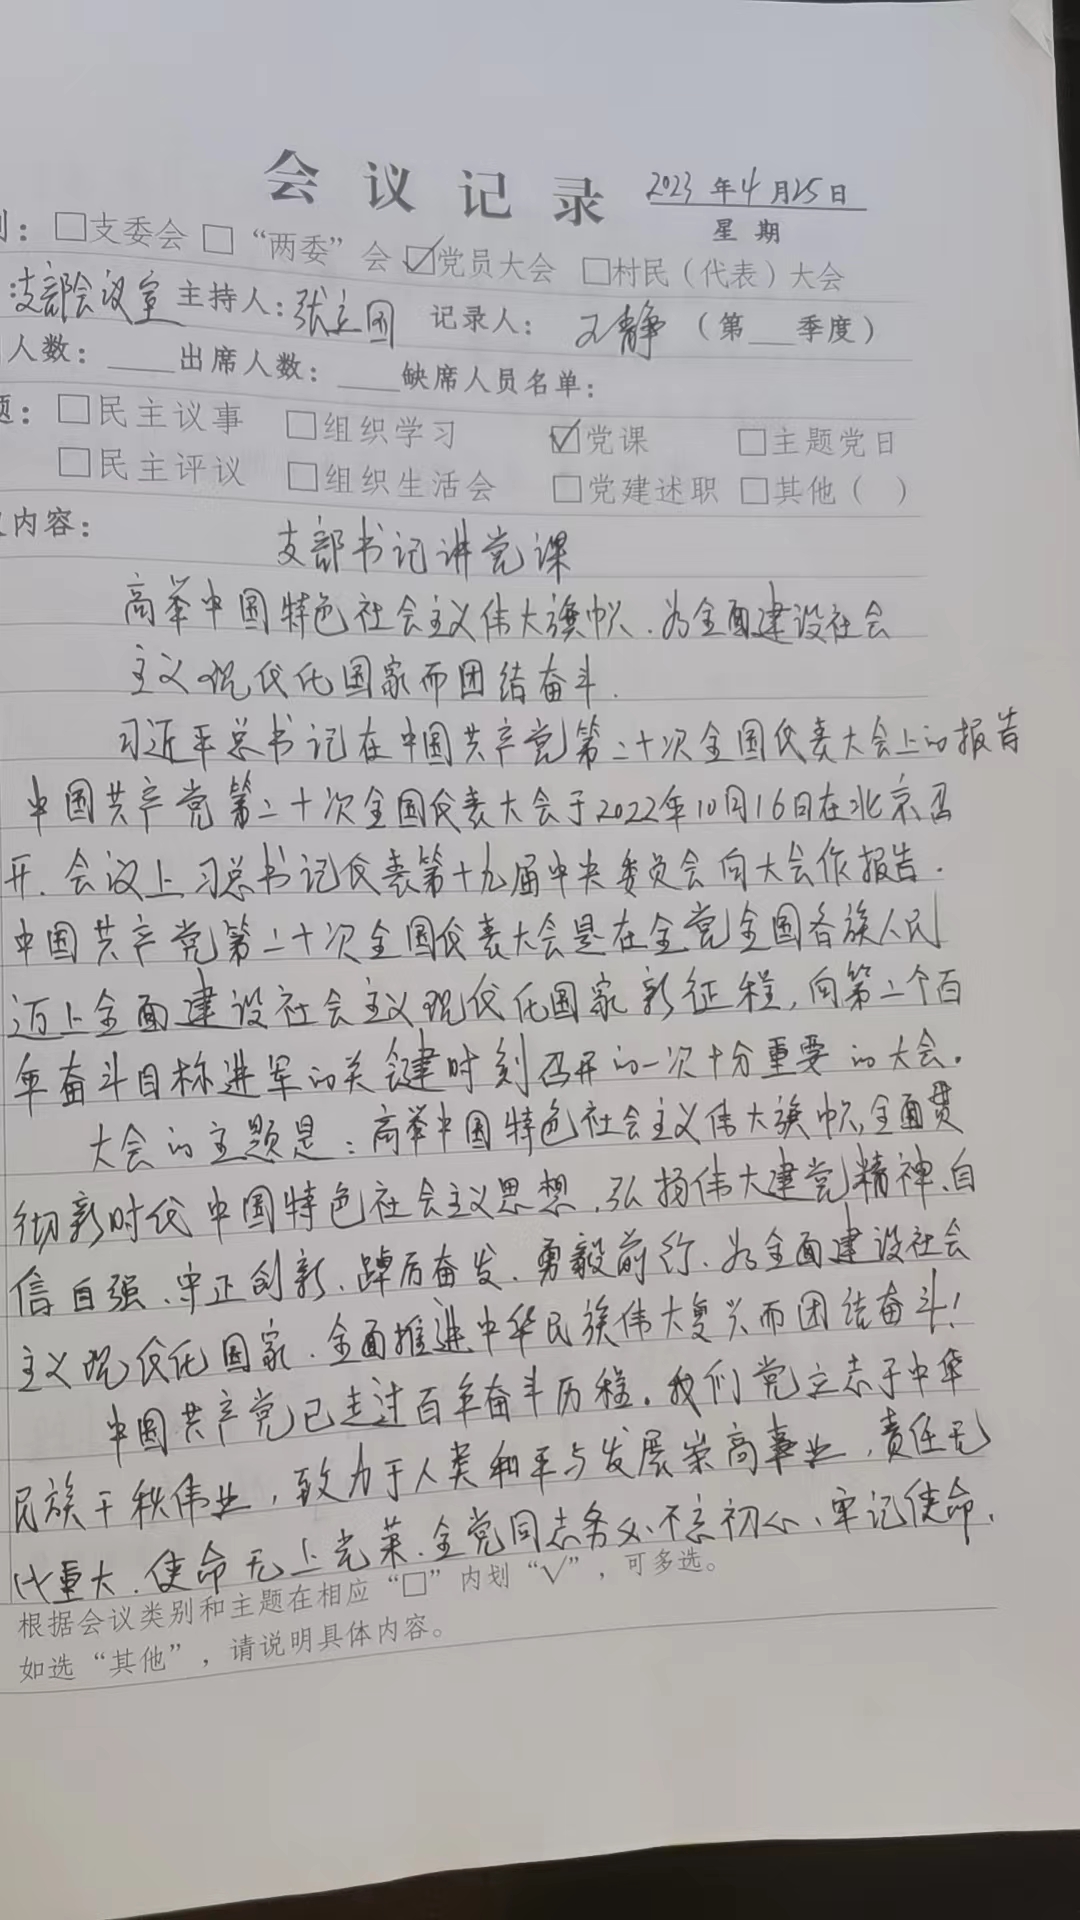 会议记录 2023年4月25日
星期
别：□支委会 □“两委”会 ☑党员大会 □村民（代表）大会
：支部会议室 主持人：张立国 记录人：王静（第___季度）
人数：____出席人数：____缺席人员名单：
题：□民主议事 □组织学习 ☑党课 □主题党日
□民主评议 □组织生活会 □党建述职 □其他（ ）
议内容：
支部书记讲党课
高举中国特色社会主义伟大旗帜、为全面建设社会
主义现代化国家而团结奋斗.
习近平总书记在中国共产党第二十次全国代表大会上的报告
中国共产党第二十次全国代表大会于2022年10月16日在北京召
开、会议上习总书记代表第十九届中央委员会向大会作报告.
中国共产党第二十次全国代表大会是在全党全国各族人民
迈上全面建设社会主义现代化国家新征程,向第二个百
年奋斗目标进军的关键时刻召开的一次十分重要的大会。
大会的主题是：高举中国特色社会主义伟大旗帜,全面贯
彻新时代中国特色社会主义思想,弘扬伟大建党精神、自
信自强、守正创新、踔厉奋发、勇毅前行、为全面建设社会
主义现代化国家、全面推进中华民族伟大复兴而团结奋斗！
中国共产党已走过百年奋斗历程。我们党立志于中华
民族千秋伟业,致力于人类和平与发展崇高事业,责任无
比重大、使命无上光荣、全党同志务必不忘初心、牢记使命、
根据会议类别和主题在相应“□”内划“√”，可多选。
如选“其他”，请说明具体内容。